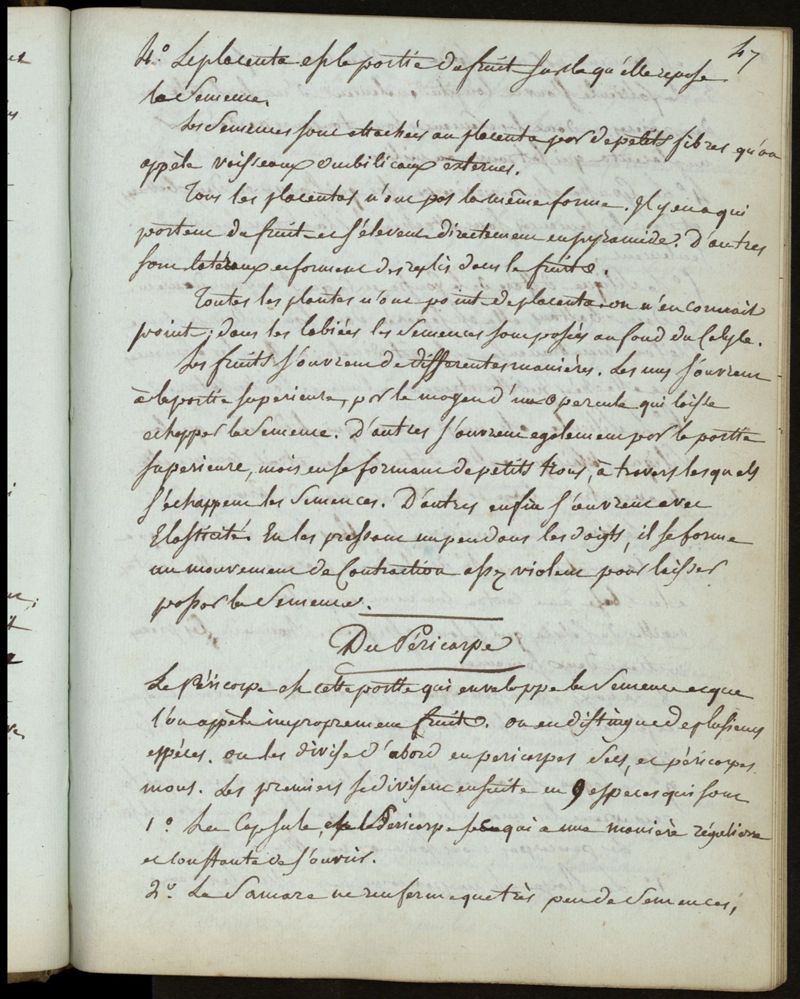 47
4.° Le placenta est la partie du fruit sur laqu'elle repose
la Semence.
Les Semences sont attachées au placenta par de petits fibres qu'on
appèle vaisseaux ombilicaux externes.
Tous les placentas n'ont pas la même forme. Il y en a qui
partent du fruit et s'élevent directement en pyramide. D'autres
sont lateraux et forment des replis dans le fruit.
Toutes les plantes n'ont point de placenta on n'en connait
point; dans les labiées les Semences sont posées au fond du Calyce.
Les fruits s'ouvrent de differentes manières. Les uns s'ouvrent
à la partie superieure, par le moyen d'un opercule qui laisse
echapper la Semence. D'autres s'ouvrent egalement par la partie
superieure, mais en se formant de petits trous, à travers lesquels
s'échappent les Semences. D'autres enfin s'ouvrent avec
Elasticité. En les pressant un peu dans les doigts, il se forme
un mouvement de Contraction assez violent pour laisser
passer la Semence.
Du Péricarpe
Le Péricarpe est cette partie qui enveloppe la Semence et que
l'on appèle improprement fruit. on en distingue de plusieurs
espèces. on les divise d'abord en pericarpes secs, et péricarpes
mous. Les premiers se divisent ensuite en 9 especes qui sont
1.° La Capsule, est le Pericarpe sec qui a une manière régulière
et constante de s'ouvrir.
2.° La Samare ne renferme que très peu de Semences,